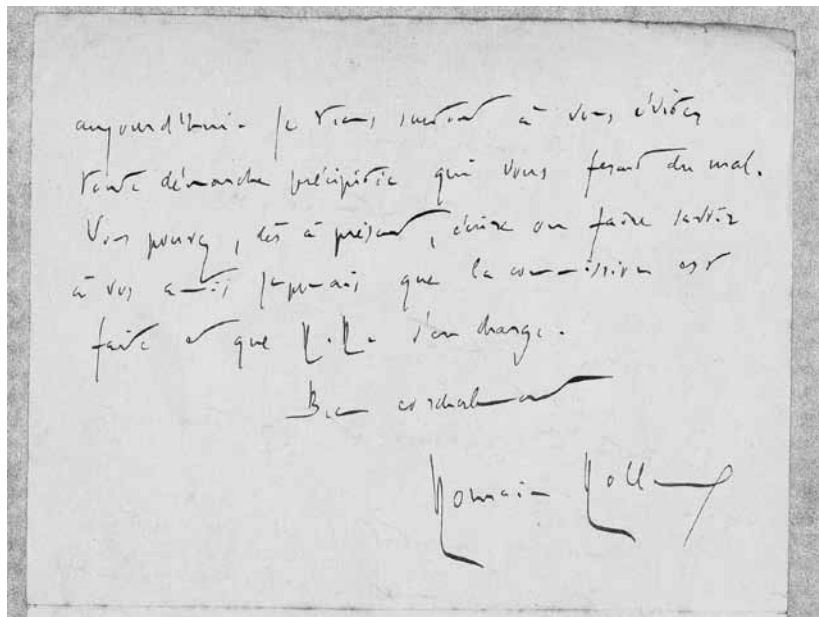 aujourd'hui. Je tiens surtout à vous éviter
toute démarche précipitée qui vous ferait du mal.
Vous pouvez, dès à présent, écrire ou faire savoir
à vos amis japonais que la commission est
faite et que R. R. s'en charge.
Bien cordialement
Romain Rolland